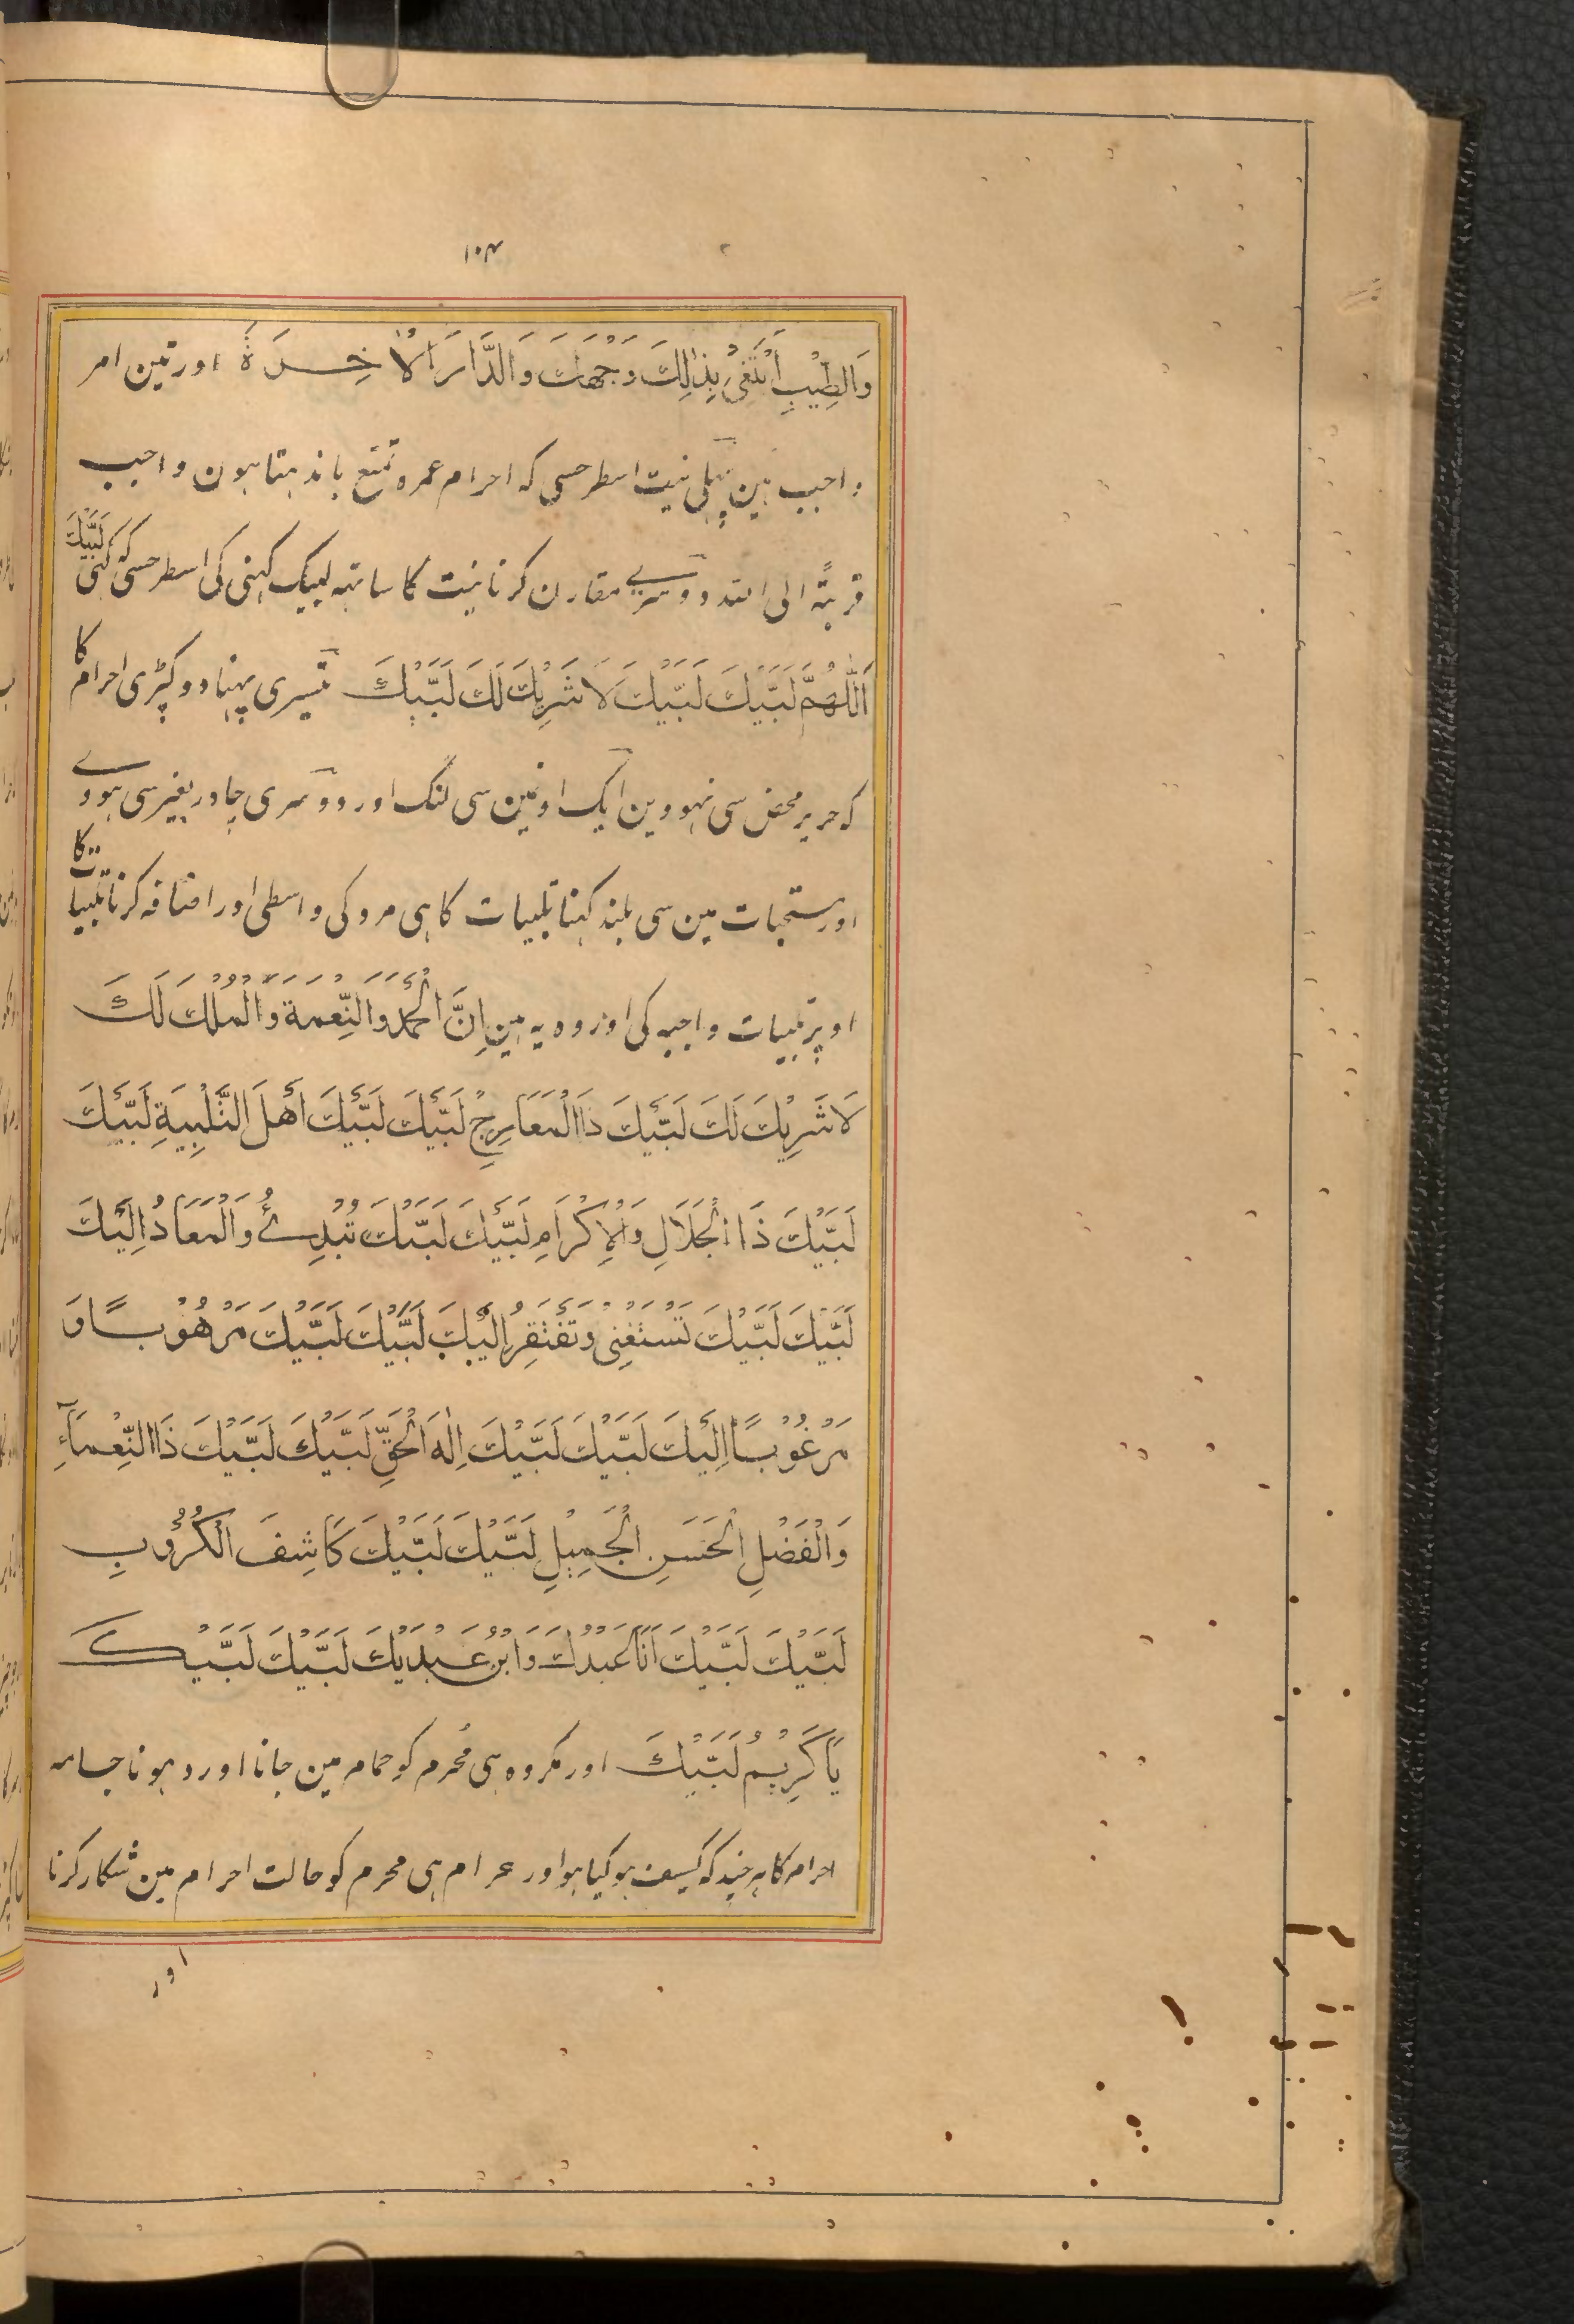 ۱۰۴
وَالطِّيْبِ اَبْتَغِيْ بِذٰلِكَ وَجْهَكَ وَالدَّارَ الْاٰخِرَةَ اور تین امر
واجب ہین پہلی نیت اسطرحسی کہ احرام عمرہ تمتع باندہتا ہون واجب
قربۃً الی اللہ دوسرے مقارن کرنا نیت کا ساتہہ لبیک کہنی کی اسطرحسی کہ کہی لَبَّيْكَ
اَللّٰهُمَّ لَبَّيْكَ لَبَّيْكَ لَا شَرِيْكَ لَكَ لَبَّيْكَ تیسری پہننا دو کپڑی احرام کا
کہ حریر محض سی نہووین ایک اونمین سی لنگ اور دوسری چادر بغیر سی ہووے
اور مستحبات مین سی بلند کہنا تلبیات کا ہی مرد کی واسطی اور اضافہ کرنا تلبیات کا
اوپر تلبیات واجبہ کی اور وہ یہ ہین اِنَّ الْحَمْدَ وَالنِّعْمَةَ وَالْمُلْكَ لَكَ
لَا شَرِيْكَ لَكَ لَبَّيْكَ ذَا الْمَعَارِجِ لَبَّيْكَ لَبَّيْكَ اَهْلَ التَّلْبِيَةِ لَبَّيْكَ
لَبَّيْكَ ذَا الْجَلَالِ وَالْاِكْرَامِ لَبَّيْكَ لَبَّيْكَ تُبْدِئُ وَالْمَعَادُ اِلَيْكَ
لَبَّيْكَ لَبَّيْكَ تَسْتَغْنِيْ وَتَفْتَقِرُ اِلَيْكَ لَبَّيْكَ لَبَّيْكَ مَرْهُوْبًا وَ
مَرْغُوْبًا اِلَيْكَ لَبَّيْكَ لَبَّيْكَ اِلٰهَ الْحَقِّ لَبَّيْكَ لَبَّيْكَ ذَا النِّعْمَآءِ
وَالْفَضْلِ الْحَسَنِ الْجَمِيْلِ لَبَّيْكَ لَبَّيْكَ كَاشِفَ الْكُرُوْبِ
لَبَّيْكَ لَبَّيْكَ اَنَا عَبْدُكَ وَابْنُ عَبْدَيْكَ لَبَّيْكَ لَبَّيْكَ
يَا كَرِيْمُ لَبَّيْكَ اور مکروہ ہی مُحرم کو حمام مین جانا اور دہونا جامہ
احرام کا ہرچند کہ کثیف ہو گیا ہو اور حرام ہی محرم کو حالت احرام مین شکار کرنا
اور